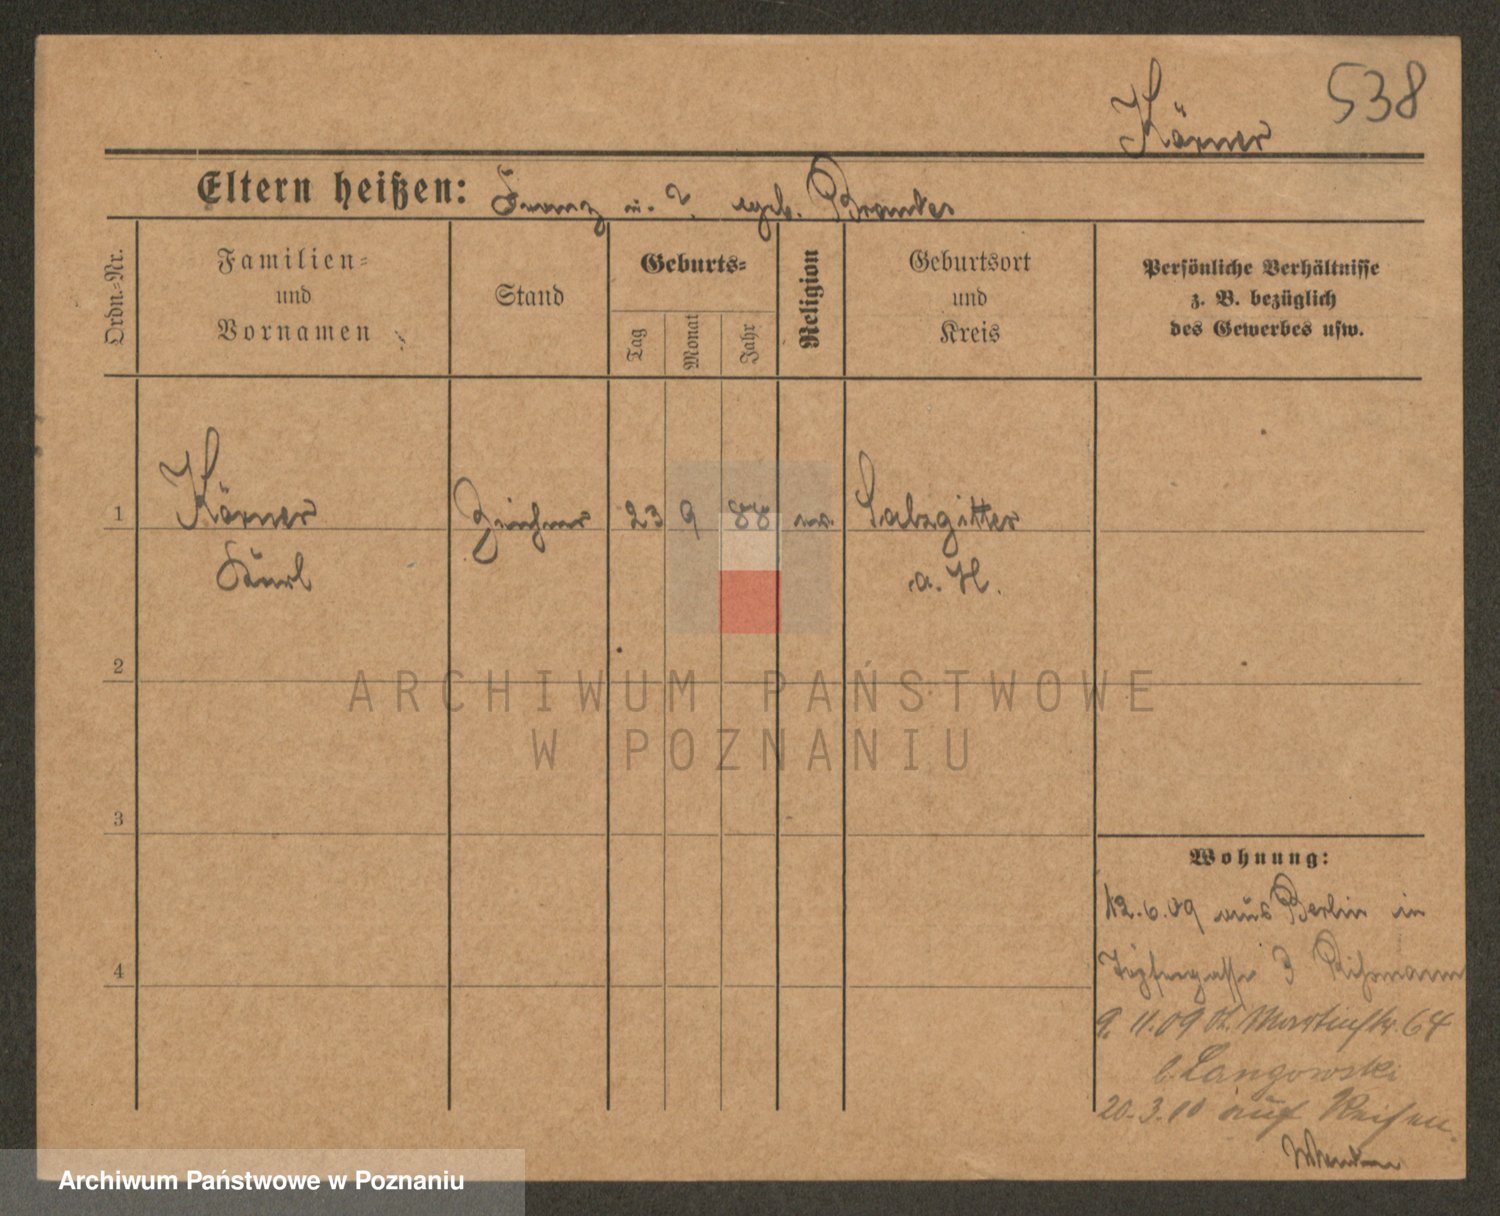 538
Körner
Eltern heißen: Franz u. ? geb. Brandes
Ordn.-Nr.
Familien-
und
Vornamen
Stand
Geburts-
Tag
Monat
Jahr
Religion
Geburtsort
und
Kreis
Persönliche Verhältnisse
z. B. bezüglich
des Gewerbes usw.
1
Körner
Karl
Zeichner
23
9
88
ev.
Salzgitter
a. H.
2
3
4
Wohnung:
12.6.09 aus Berlin in
Töpfergasse 3 Rißmann
9. 11.09 St. Martinstr. 64
b. Langowski
20.3.10 auf Reisen.
ARCHIWUM PAŃSTWOWE
W POZNANIU
Archiwum Państwowe w Poznaniu